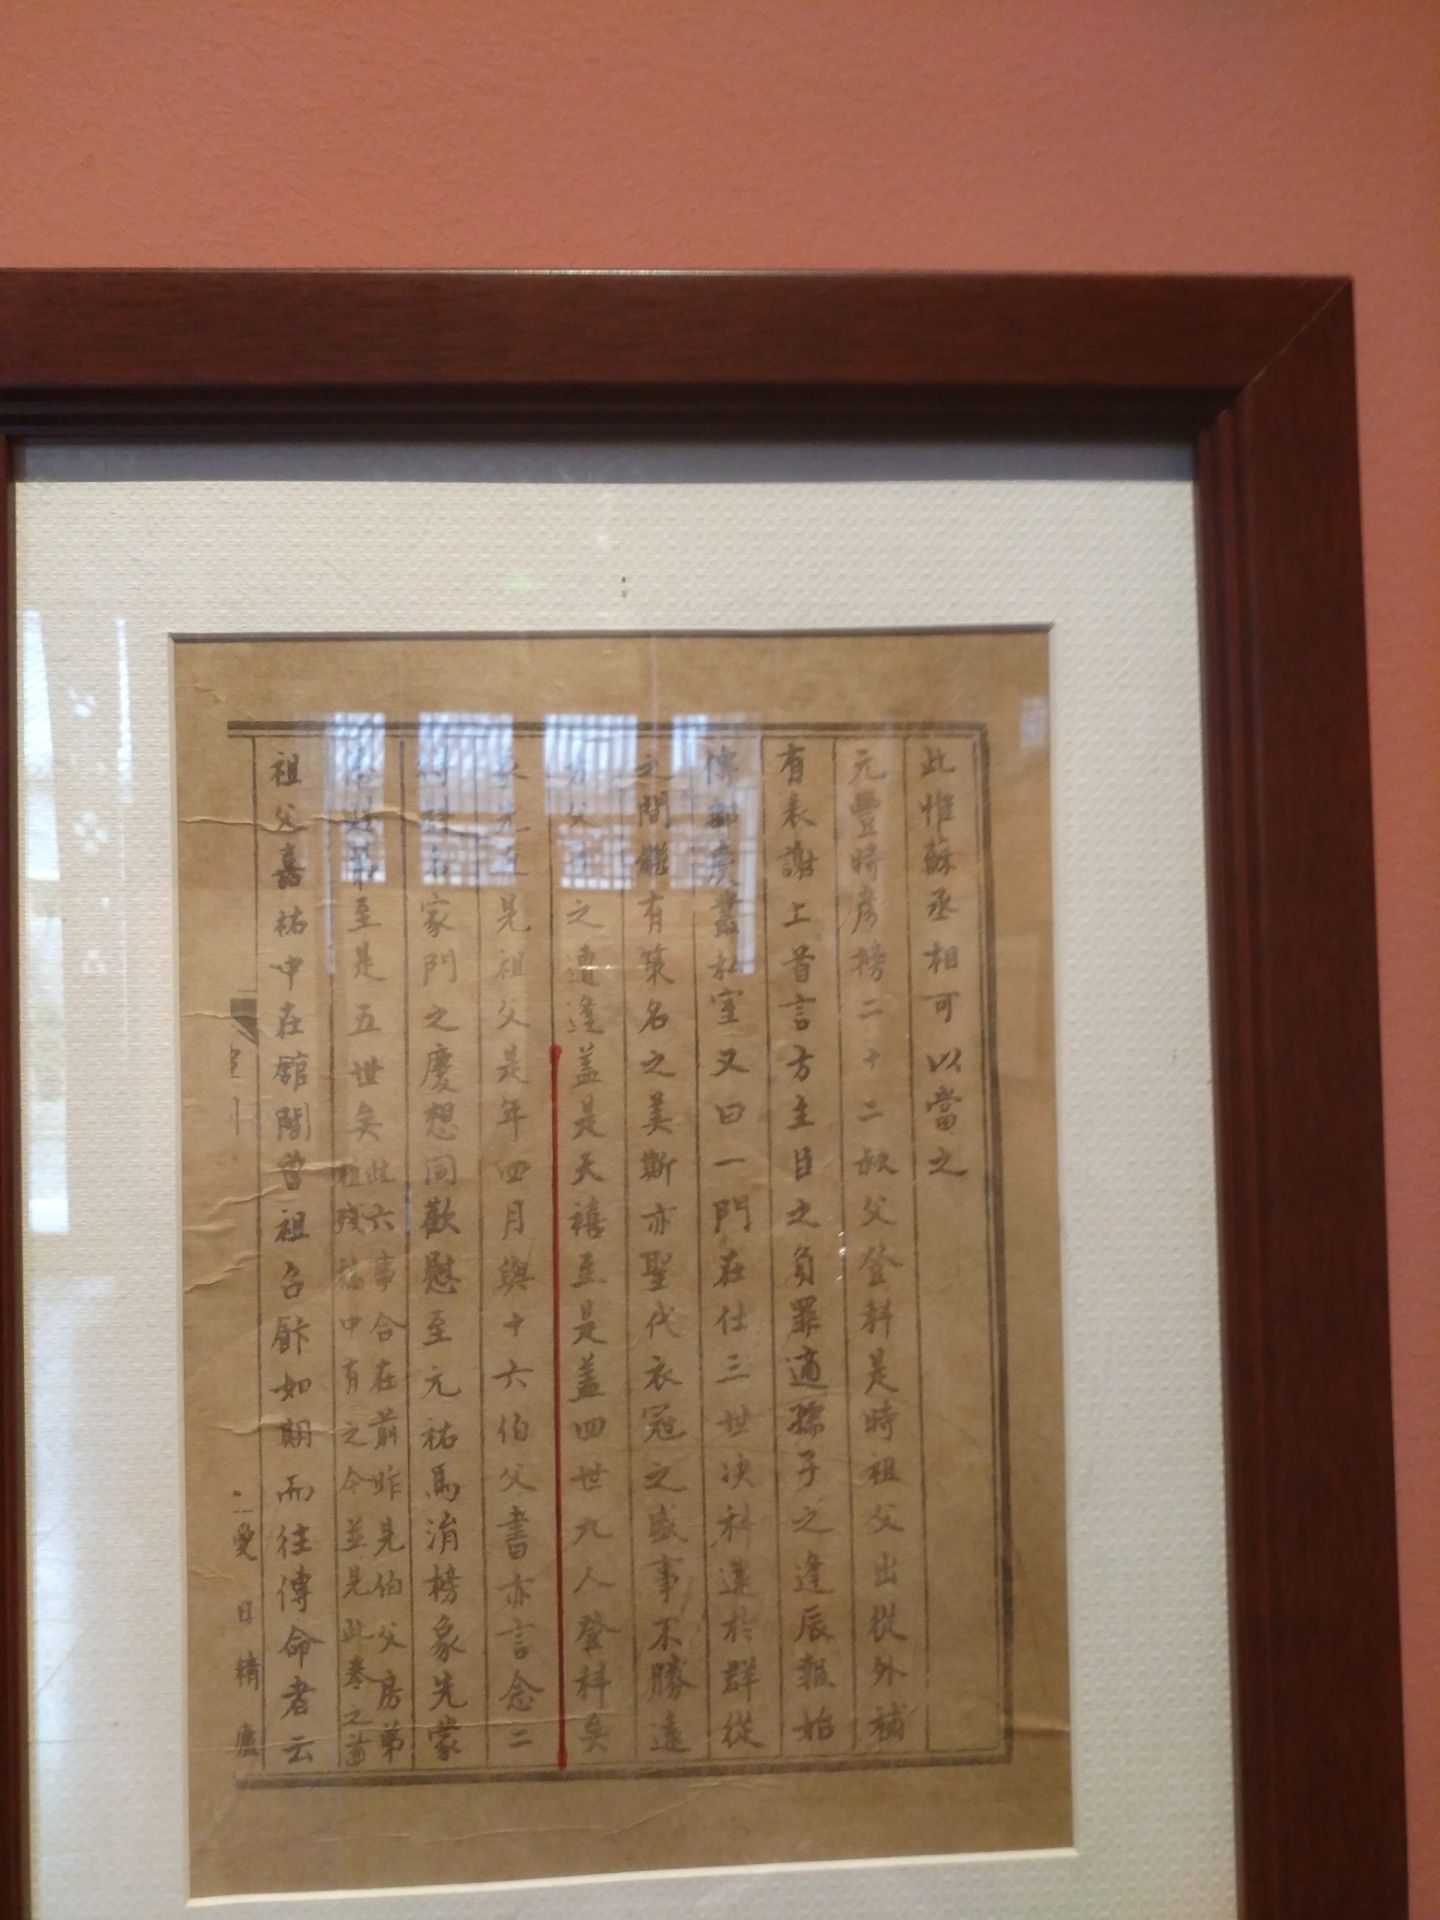 此惟蘇丞相可以當之
元豐時彥榜二十二叔父登科是時祖父出從外補
有表謝上首言方主臣之負罪適孺子之逢辰報始
傳郡慶叢私室又曰一門在仕三世決科遠於群從
之間繼有策名之美斯亦聖代衣冠之盛事不勝遠
方父之遭逢盖是天禧至是盖四世九人登科矣
先是祖父是年四月與十六伯父書亦言念二
家門之慶想同歡慰至元祐馬涓榜象先蒙
至是五世矣此六事合在前昨見伯父房弟
祖殘祐中有之今並見此卷之首
祖父嘉祐中在館閣曾祖召酢如期而往傳命者云
愛日精廬